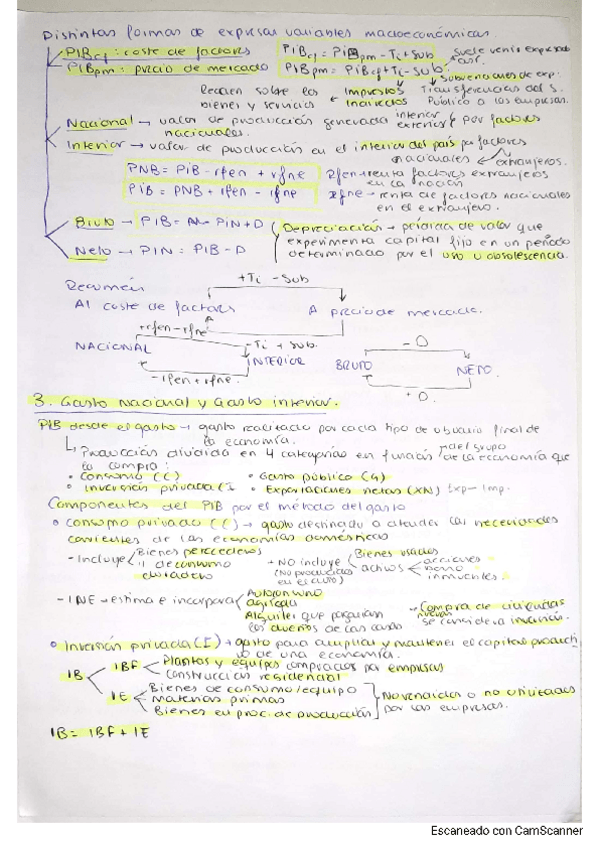 Distintas formas de expresar variables macroeconómicas.
PIBcf : coste de factores PIBcf = PIBpm - Ti + Sub suele venir expresado así.
PIBpm : precio de mercado PIBpm = PIBcf + Ti - Sub.
Recaen sobre los bienes y servicios ← Impuestos Indirectos
Subvenciones de exp.
Transferencias del S. Público a las empresas.
Nacional → valor de producción generada interior exterior por factores nacionales.
Interior → valor de producción en el interior del país por factores nacionales extranjeros.
PNB = PIB - rfen + rfne
PIB = PNB + rfen - rfne
Rfen → renta factores extranjeros en la nación
Rfne → renta de factores nacionales en el extranjero.
Bruto → PIB = PIN + D
Neto → PIN = PIB - D
Depreciación → pérdida de valor que experimenta capital fijo en un periodo determinado por el uso u obsolescencia.
Resumen
+Ti - Sub
Al coste de factores A precio de mercado.
- Ti + Sub.
+rfen - rfne
NACIONAL INTERIOR
- rfen + rfne.
- D
BRUTO NETO
+ D.
3. Gasto Nacional y Gasto interior.
PIB desde el gasto → gasto realizado por cada tipo de usuario final de la economía.
↳ Producción dividida en 4 categorías en función del grupo de la economía que la compra:
• Consumo (C) • Gasto público (G)
• Inversión privada (I • Exportaciones netas (XN) Exp - Imp.
Componentes del PIB por el método del gasto
• Consumo privado (C) → gasto destinado a atender las necesidades corrientes de las economías domésticas
- Incluye Bienes perecederos
" de consumo duradero
+ NO incluye (No producidos en el curso) Bienes usados
activos acciones
inmuebles.
- INE → estima e incorpora Autoconsumo agrícola
Alquiler que pagarían los dueños de las casas
Compra de viviendas nuevas se considera inversión.
• Inversión privada (I) → gasto para ampliar y mantener el capital productivo de una economía.
IB IBF Plantas y equipos comprados por empresas
Construcción residencial
IE Bienes de consumo/equipo
Materias primas
Bienes en proc. de producción
No vendidos o no utilizados por las empresas.
IB = IBF + IE
Escaneado con CamScanner